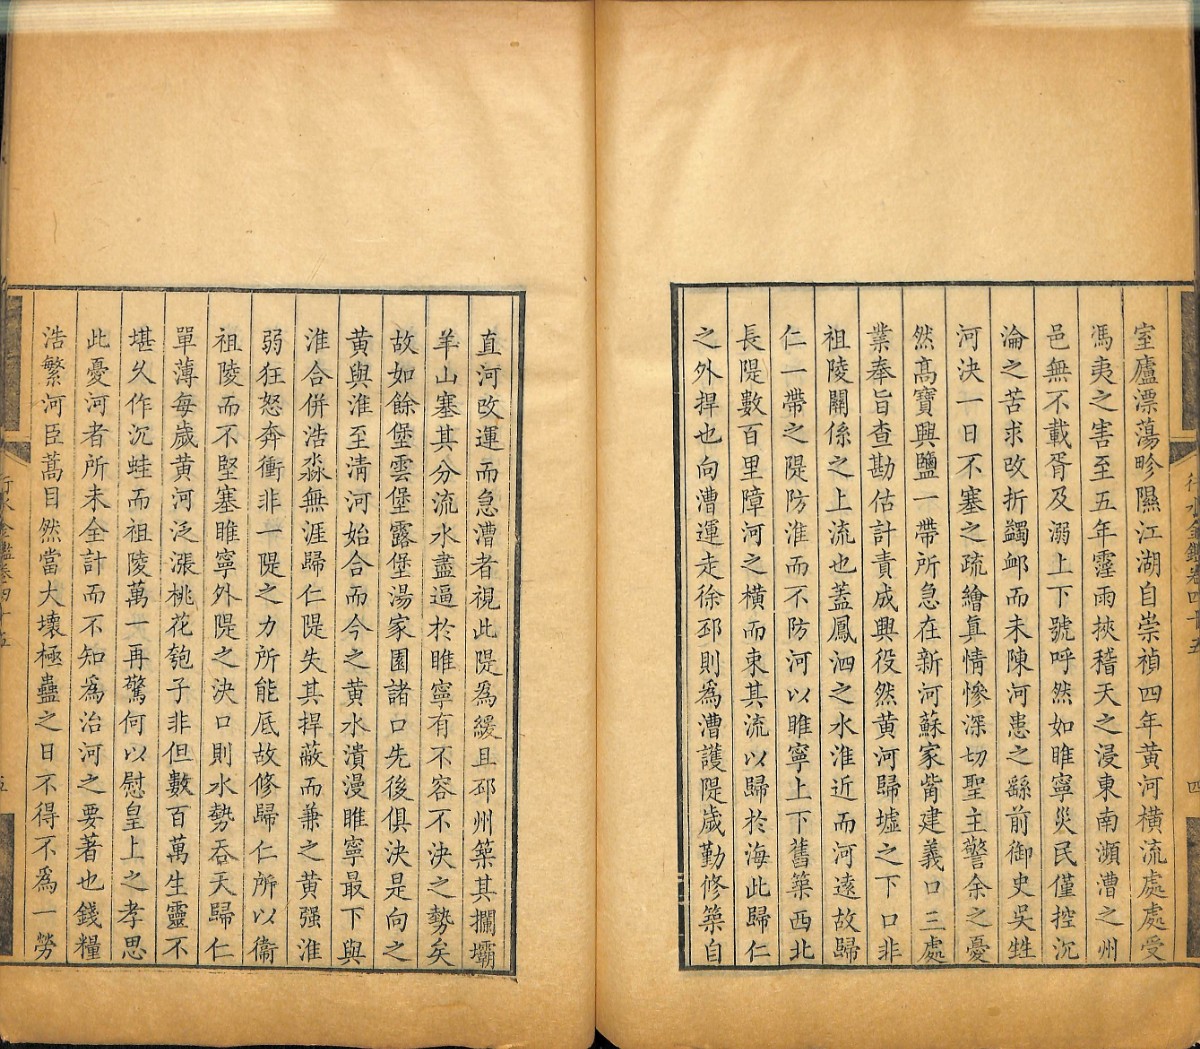 室廬漂蕩畛隰江湖自崇禎四年黄河橫流處處受
馮夷之害至五年霪雨挾稽天之浸東南瀕漕之州
邑無不載胥及溺上下號呼然如睢寧災民僅控沉
淪之苦求改折蠲䘏而未陳河患之繇前御史吳甡
河決一日不塞之疏繪眞情慘深切聖主警余之憂
然高寶興鹽一帶所急在新河蘇家嘴建義口三處
業奉旨查勘估計責成興役然黄河歸墟之下口非
祖陵關係之上流也蓋鳳泗之水淮近而河遠故歸
仁一帶之隄防淮而不防河以睢寧上下舊築西北
長隄數百里障河之橫而東其流以歸於海此歸仁
之外捍也向漕運走徐邳則爲漕護隄歲勤修築自
行水金鑑卷四十五
四
直河改運而急漕者視此隄爲緩且邳州築其攔壩
羊山塞其分流水盡逼於睢寧有不容不決之勢矣
故如餘堡雲堡露堡湯家園諸口先後俱決是向之
黄與淮至清河始合而今之黄水潰漫睢寧最下與
淮合併浩淼無涯歸仁隄失其捍蔽而兼之黄强淮
弱狂怒奔衝非一隄之力所能底故修歸仁所以衞
祖陵而不堅塞睢寧外隄之決口則水勢吞天歸仁
單薄每歲黄河泛漲桃花匏子非但數百萬生靈不
堪久作沉蛙而祖陵萬一再驚何以慰皇上之孝思
此憂河者所未全計而不知爲治河之要著也錢糧
浩繁河臣蒿目然當大壞極蠱之日不得不爲一勞
行水金鑑卷四十五
五